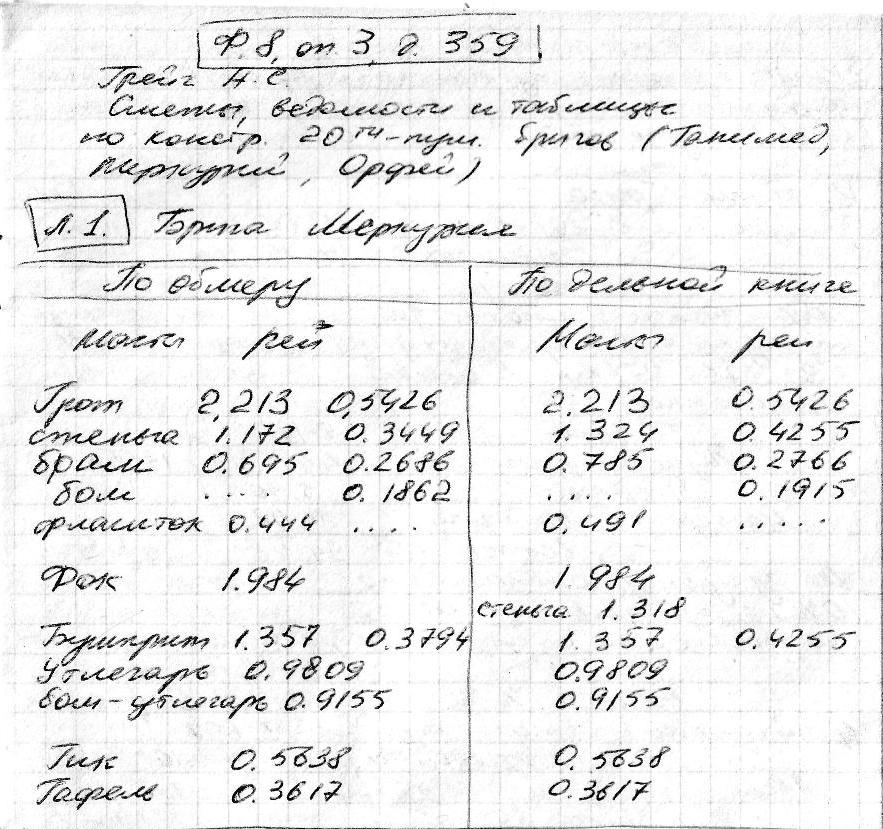 Ф. 8, оп 3, д. 359
Грейг А. С.
Сметы, ведомости и таблицы
по констр. 20ти-пуш. бригов (Ганимед,
Меркурий, Орфей)
Л. 1. Брига Меркурия
По обмеру По дельной книге
Мачты рей Мачты реи
Грот 2,213 0,5426 2.213 0.5426
стеньга 1.172 0.3449 1.324 0.4255
брам 0.695 0.2686 0.785 0.2766
бом .... 0.1862 .... 0.1915
флагшток 0.444 .... 0.491 .....
Фок 1.984 1.984
стеньга 1.318
Бушприт 1.357 0.3794 1.357 0.4255
утлегарь 0.9809 0.9809
бом-утлегарь 0.9155 0.9155
Гик 0.5638 0.5638
Гафель 0.3617 0.3617